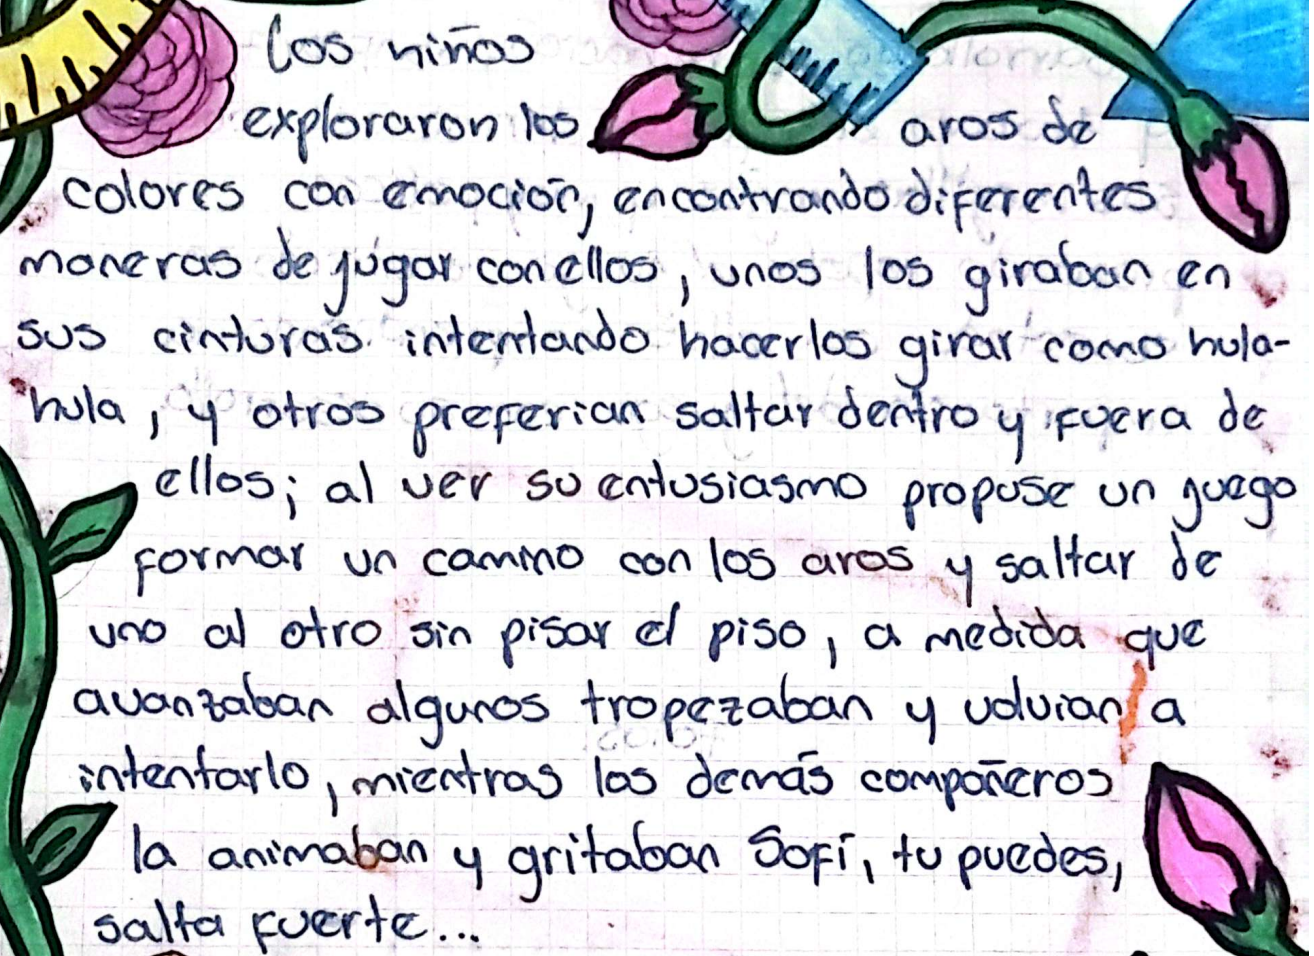 Los niños
exploraron los aros de
colores con emoción, encontrando diferentes
maneras de jugar con ellos, unos los giraban en
sus cinturas intentando hacerlos girar como hula-
hula, y otros preferian saltar dentro y fuera de
ellos; al ver su entusiasmo propuse un juego
formar un camino con los aros y saltar de
uno al otro sin pisar el piso, a medida que
avanzaban algunos tropezaban y volvian a
intentarlo, mientras los demás compañeros
la animaban y gritaban Sofí, tu puedes,
salta fuerte...